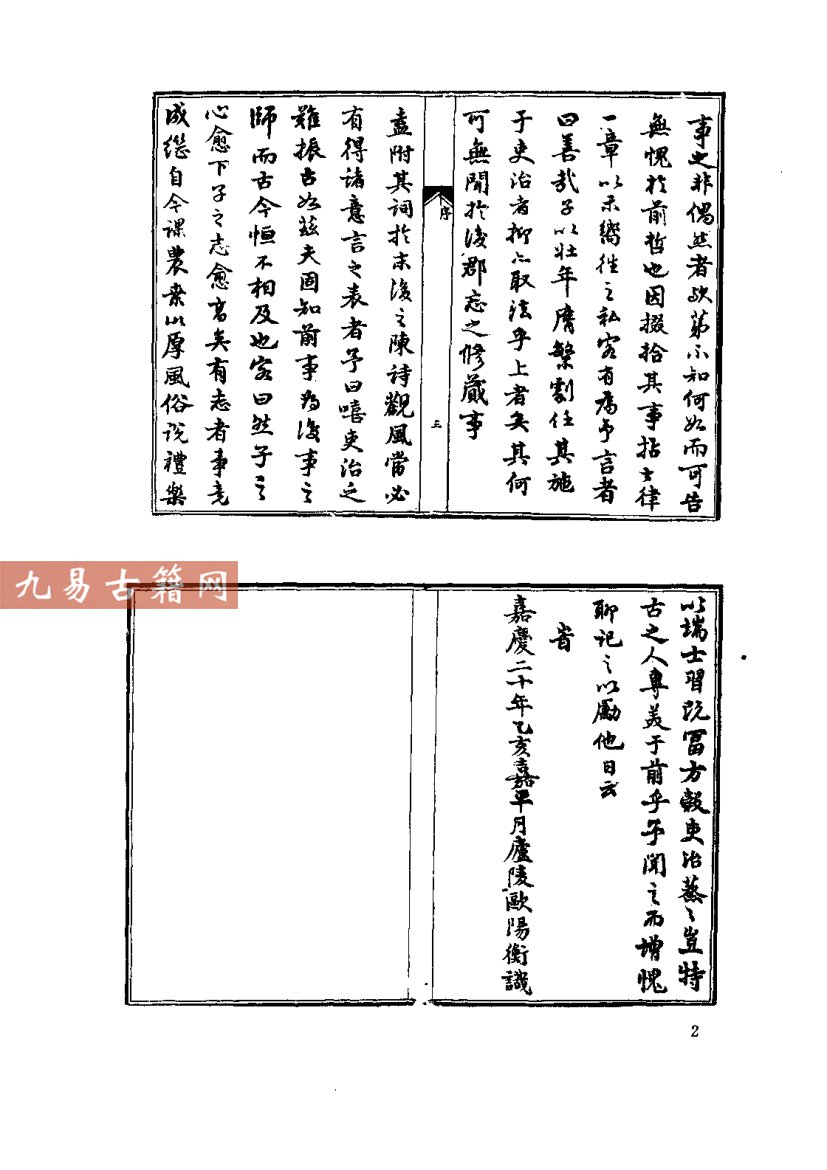 事之非偶然者歟第不知何如而可告
無愧於前哲也因掇拾其事拈七律
一章以示嚮往之私客有為予言者
曰善哉子以壯年膺繁劇任其施
于吏治者抑亦取法乎上者矣其何
可無聞於後郡志之修蕆事
序
三
盍附其詞於末後之陳詩觀風當必
有得諸意言之表者予曰嘻吏治之
難振古如茲夫固知前事為後事之
師而古今恒不相及也客曰然子之
心愈下子之志愈高矣有志者事竟
成繼自今課農桑以厚風俗說禮樂
九易古籍网
以端士習既富方穀吏治蒸〻豈特
古之人專美于前乎予聞之而增愧
聊記之以勵他日云
嘉慶二十年乙亥嘉平月廬陵歐陽衡識
2